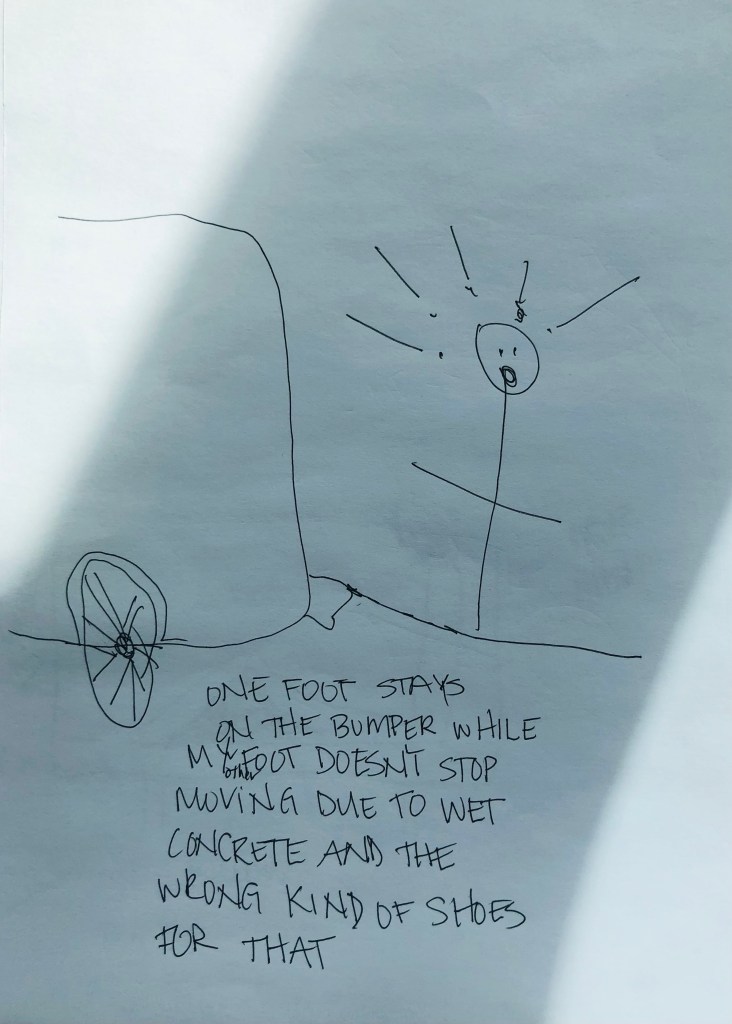 ONE FOOT STAYS
ON THE BUMPER WHILE
MY other FOOT DOESN'T STOP
MOVING DUE TO WET
CONCRETE AND THE
WRONG KIND OF SHOES
FOR THAT